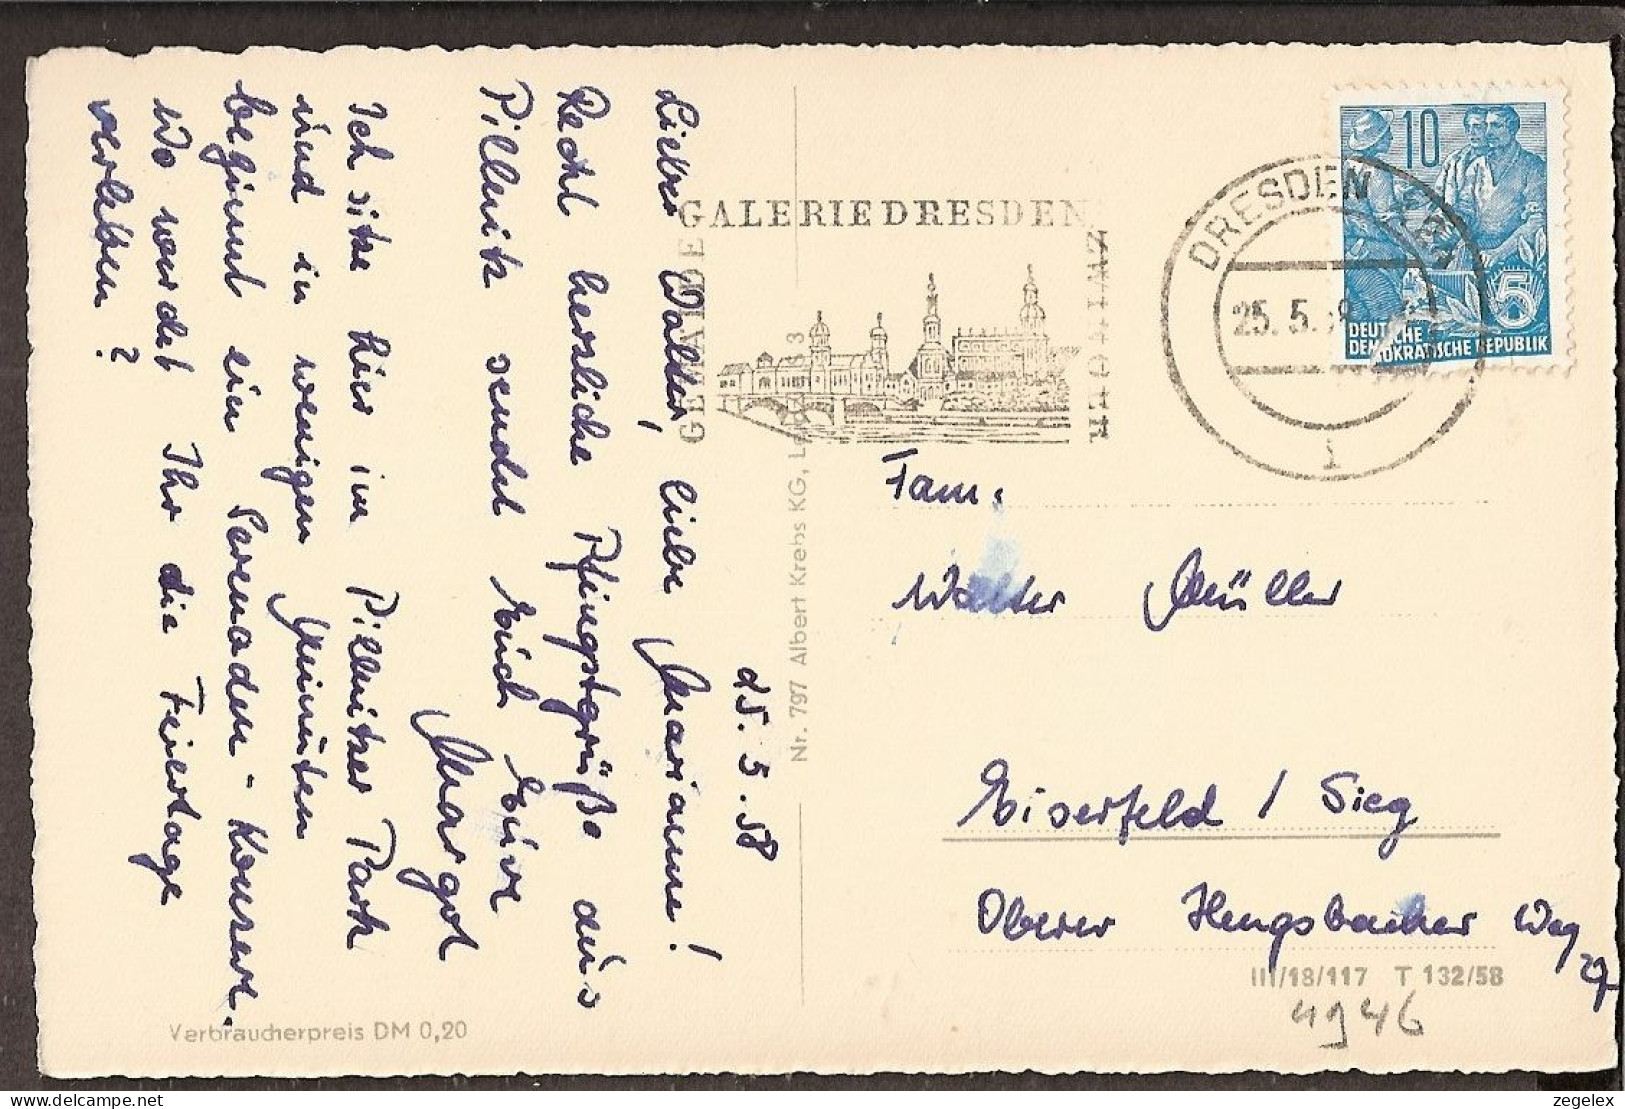 25. 5. 58
Lieber Walter, liebe Marianne!
Recht herzliche Pfingstgrüße aus
Pillnitz sendet Euch Eure
Margot
Ich sitze hier im Pillnitzer Park
und in wenigen Minuten
beginnt ein Serenaden-Konzert.
Wo werdet Ihr die Feiertage
verleben?
Verbraucherpreis DM 0,20
Nr. 797 Albert Krebs KG,
GEMÄLDE
GALERIE DRESDEN
DRESDEN
25. 5. 58
10
5
DEUTSCHE
DEMOKRATISCHE REPUBLIK
Fam.
Walter Müller
Eiserfeld / Sieg
Oberer Hengsbacher Weg
29
III/18/117 T 132/58
4946
zegelex
www.delcampe.net